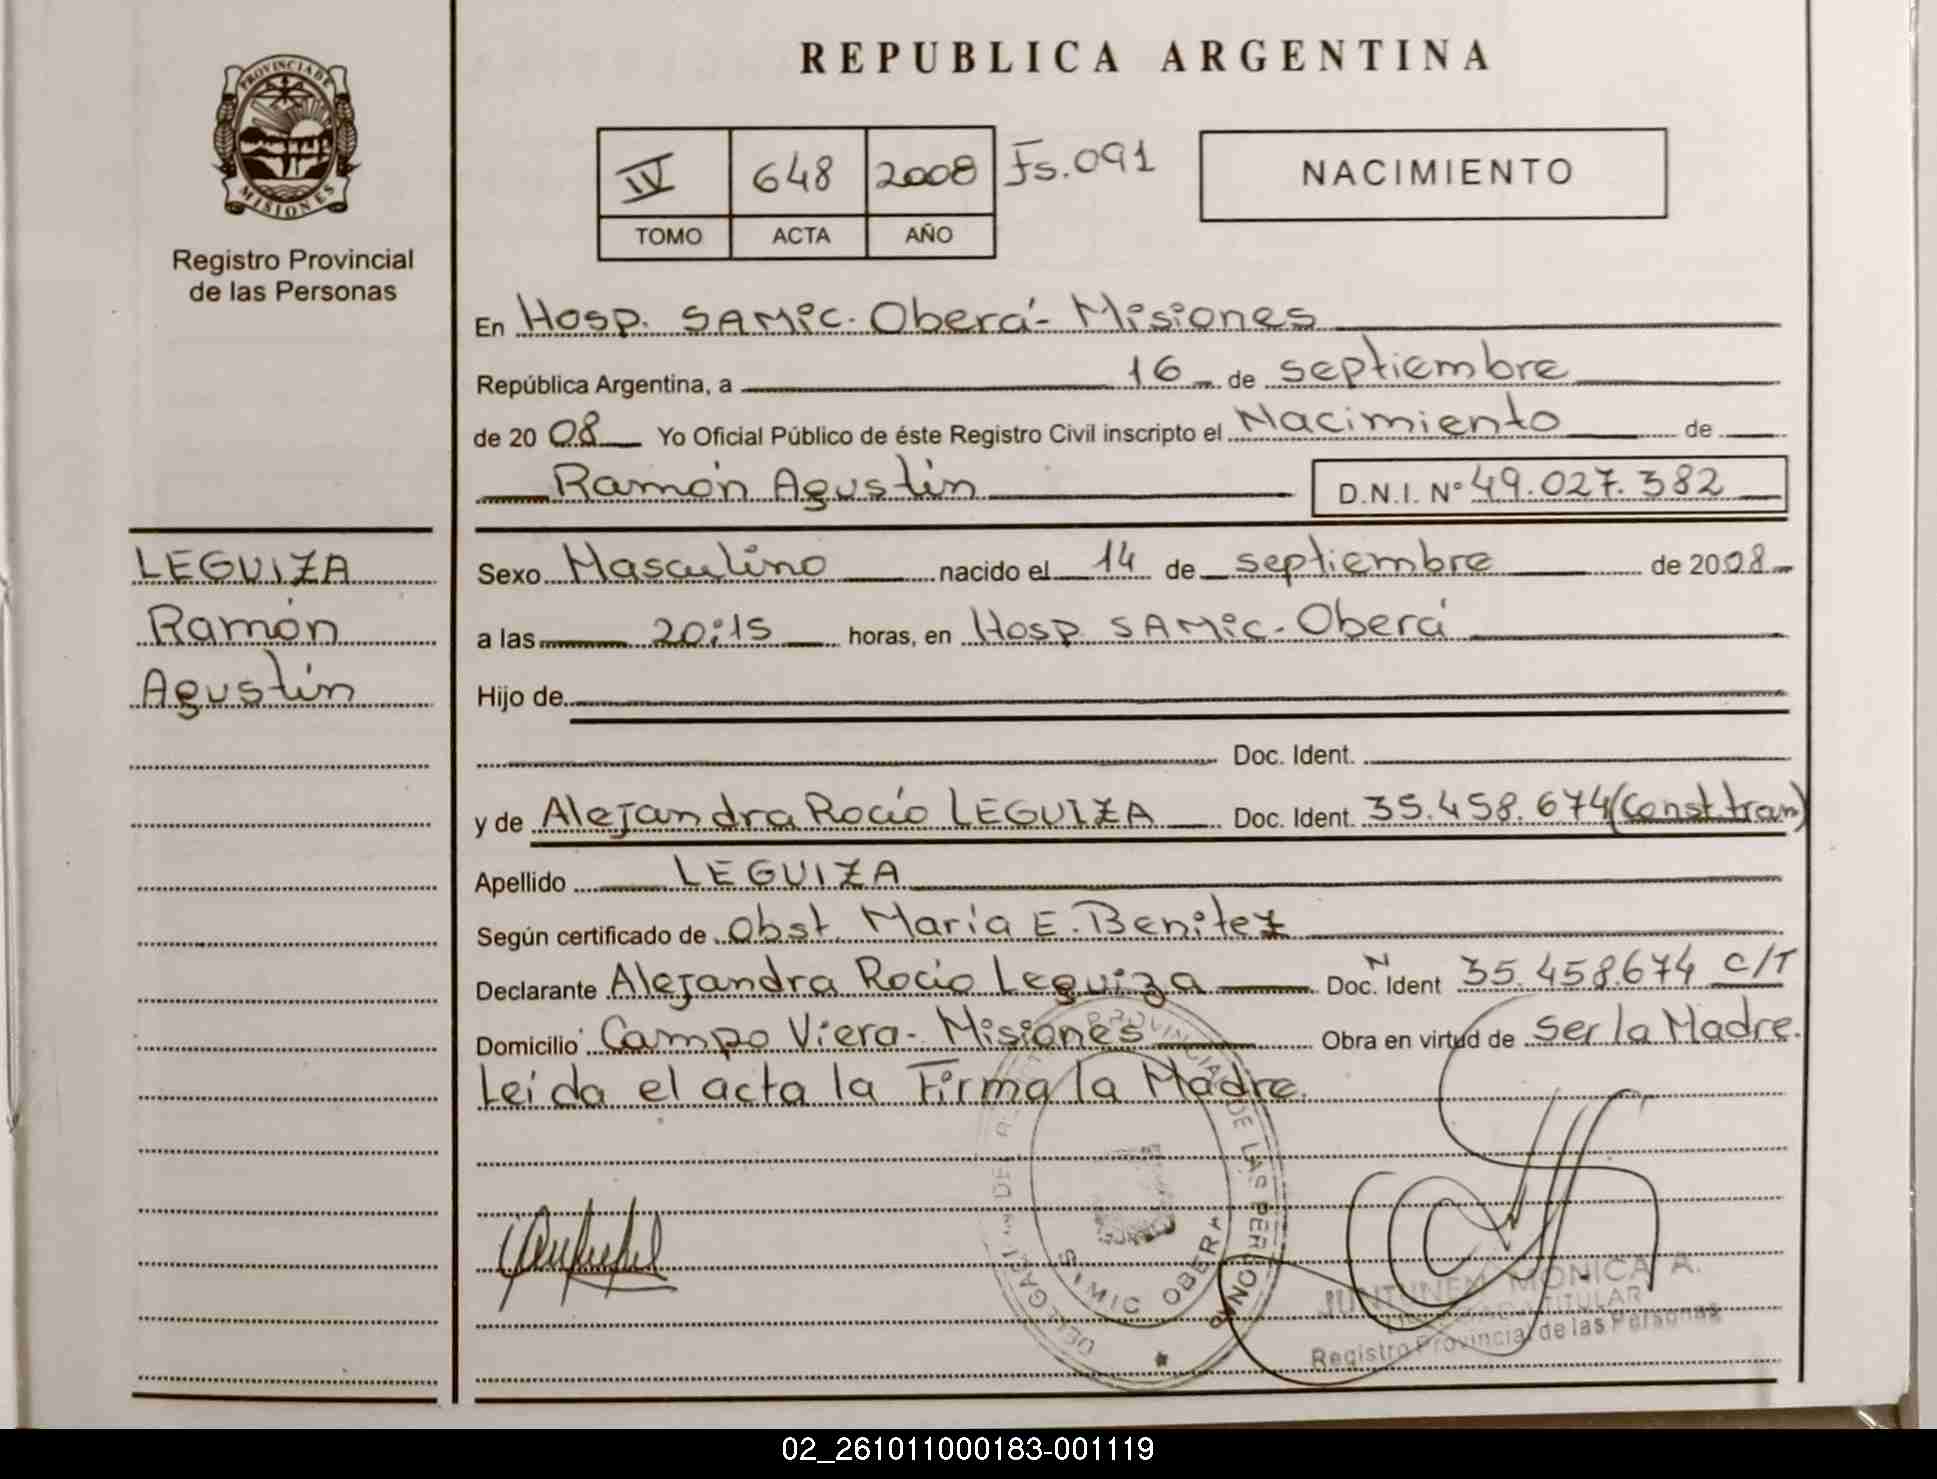 REPUBLICA ARGENTINA
PROVINCIA DE
MISIONES
Registro Provincial
de las Personas
IV 648 2008 Fs. 091
TOMO ACTA AÑO
NACIMIENTO
En Hosp. SAMic. Oberá - Misiones
República Argentina, a 16 de septiembre
de 20 08 Yo Oficial Público de éste Registro Civil inscripto el Nacimiento de
Ramón Agustín D.N.I. N° 49.027.382
LEGUIZA
Ramón
Agustín
Sexo Masculino nacido el 14 de septiembre de 2008
a las 20:15 horas, en Hosp SAMic - Oberá
Hijo de
Doc. Ident.
y de Alejandra Rocío LEGUIZA Doc. Ident. 35.458.674 (Const. tram)
Apellido LEGUIZA
Según certificado de Obst. María E. Benitez
Declarante Alejandra Rocio Leguiza Doc. N Ident 35.458.674 C/T
Domicilio Campo Viera - Misiones Obra en virtud de Ser la Madre.
Leída el acta la Firma la Madre.
PROVINCIAL DE LAS PERSONAS
OBERA
JUNTUNEN MONICA A.
TITULAR
Registro Provincial de las Personas
02_261011000183-001119